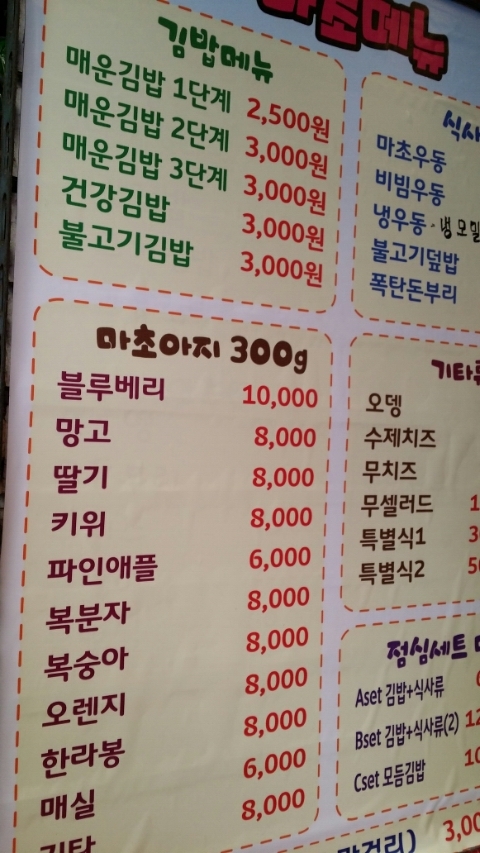 마초메뉴
김밥메뉴
매운김밥 1단계 2,500원
매운김밥 2단계 3,000원
매운김밥 3단계 3,000원
건강김밥 3,000원
불고기김밥 3,000원
마초아지 300g
블루베리 10,000
망고 8,000
딸기 8,000
키위 8,000
파인애플 6,000
복분자 8,000
복숭아 8,000
오렌지 8,000
한라봉 8,000
매실 6,000
기타 8,000
식사
마초우동
비빔우동
냉우동·냉모밀
불고기덮밥
폭탄돈부리
기타류
오뎅
수제치즈
무치즈
무셀러드
특별식1
특별식2
점심세트
Aset 김밥+식사류
Bset 김밥+식사류(2)
Cset 모듬김밥
3,00